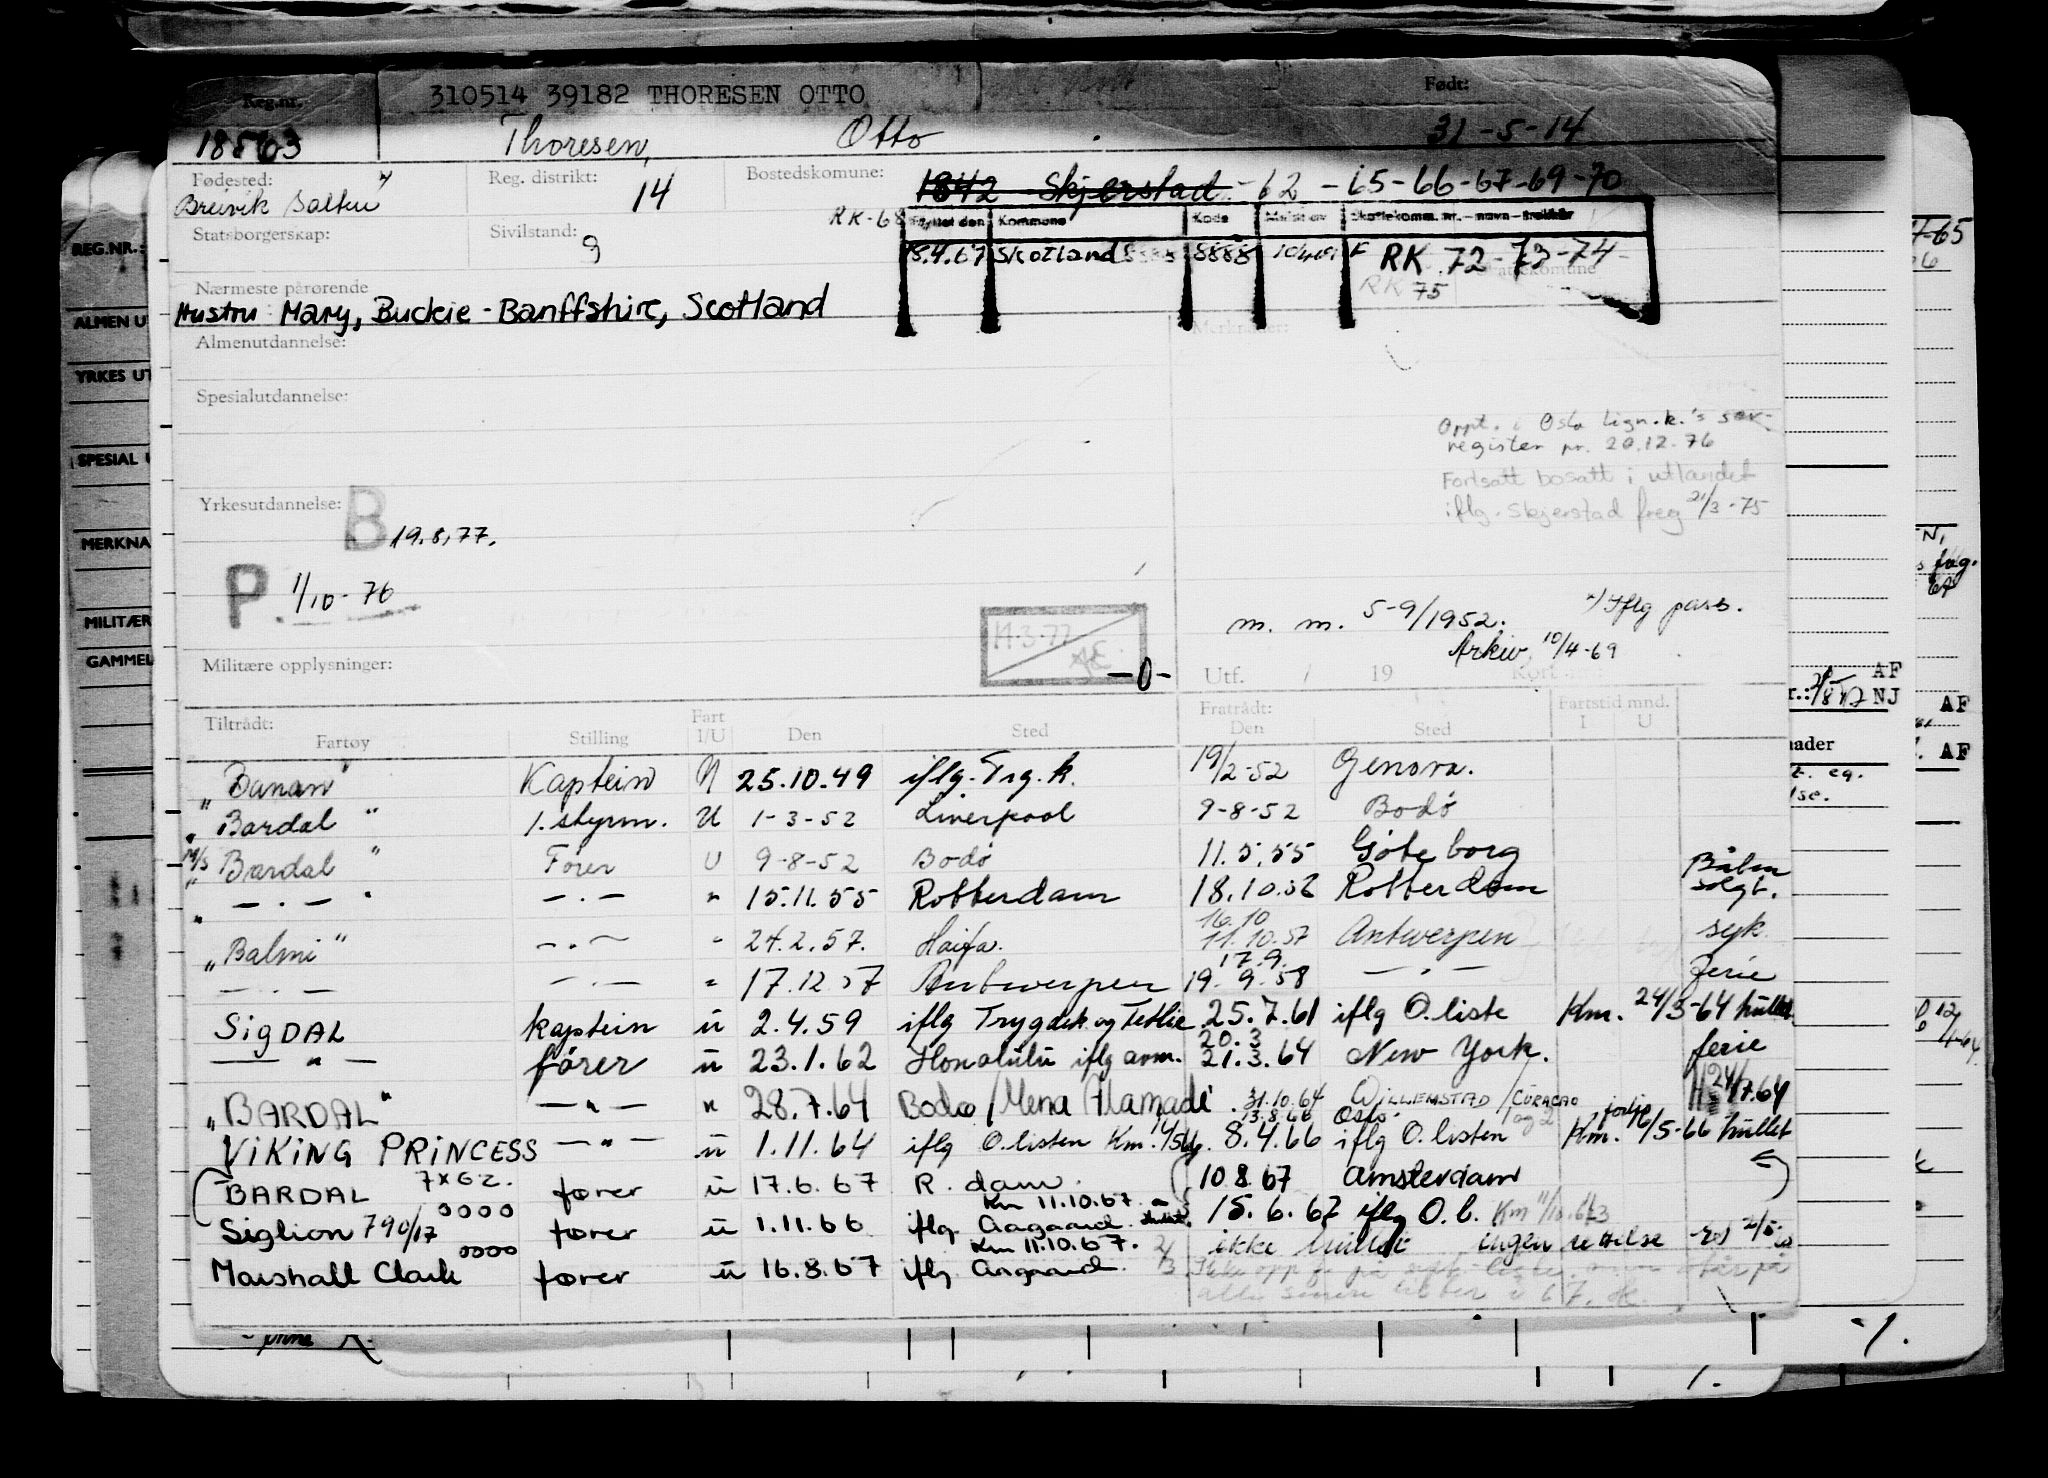 Reg.nr. 310514 39182 THORESEN OTTO Født:
Thoresen, Otto 31-5-14
Fødested: Reg. distrikt: 14 Bostedskomune: 1842 Skjerstad - 62 - 65 - 66 - 67 - 69 - 70
Breivik Salten
RK-68 Flyttet den Kommune Kode Meldt av Skattekomm. nr. - navn - trekkår
Statsborgerskap: Sivilstand: g
18.4.67 Skotland 8888 F RK 72-73-74-
RK 75
Nærmeste pårørende
Hustru Mary, Buckie - Banffshire, Scotland
Almenutdannelse: Merknader:
Spesialutdannelse:
Oppt. i Oslo lign.k.'s sær-
register pr. 20.12.76
Fortsatt bosatt i utlandet
iflg. Skjerstad freg 21/3-75
Yrkesutdannelse: B 19.8.77.
P. 1/10-76
m. m. 5-9/1952. x) Iflg pass.
Arkiv 10/4-69
14.3.77
AE
-0-
Militære opplysninger: Utf. / 19 Kort
Tiltrådt: Fart Fratrådt: Fartstid mnd.
Fartøy Stilling I/U Den Sted Den Sted I U
"Banan" Kaptein U 25.10.49 iflg. Trg.k. 19/2-52 Genova.
"Bardal" 1. styrm. U 1-3-52 Liverpool 9-8-52 Bodø
M/S "Bardal" Fører U 9-8-52 Bodø 11.5.55 Göteborg
" — . — " — . — " 15.11.55 Rotterdam 18.10.56 Rotterdam Båten solgt.
16.10
"Balmi" — . — " 24.2.57. Haifa. 11.10.57 Antwerpen syk
17.9.
— . — — . — " 17.12.57 Antwerpen 19.9.58 — . — ferie
SIGDAL kaptein u 2.4.59 iflg Trygdek. og Tetlie 25.7.61 iflg O.liste Km. 24/3-64 hullet.
20.3
— " — fører u 23.1.62 Honolulu iflg avm. 21.3.64 New York. ferie
"BARDAL" — " — " 28.7.64 Bodø / Mena Alamadi 31.10.64 WILLEMSTAD / CURACAO 24/7.64
13.8.66 Oslo
VIKING PRINCESS — " — u 1.11.64 iflg O.listen Km. 8.4.66 iflg O.listen Km. 6/5-66 hullet
BARDAL 7x62. fører u 17.6.67 R.dam. 10.8.67 Amsterdam
0000 Km 11.10.67.
Siglion 790/17 fører u 1.11.66 iflg Aagaard 15.6.67 iflg O.l.
0000 Km 11.10.67. ikke hullet ingen rettelse
Marshall Clark fører u 16.8.67 iflg Aagaard.
REG.NR.:
ALMEN UT
YRKES UT
SPESIAL
MERKNA
MILITÆR
GAMMEL
AF
NJ
AF
AF